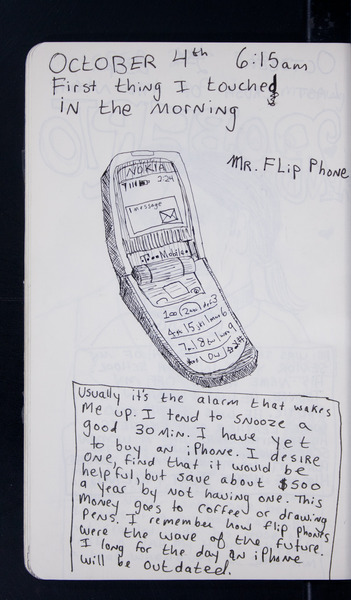 OCTOBER 4th 6:15am
First thing I touched
in the morning
MR. Flip Phone
NOKIA
2:24
1 message
T-Mobile
Usually it's the alarm that wakes
me up. I tend to snooze a
good 30 min. I have yet
to buy an iPhone. I desire
one, find that it would be
helpful, but save about $500
a year by not having one. This
money goes to coffee or drawing
pens. I remember how flip phones
were the wave of the future.
I long for the day an iPhone
will be outdated.